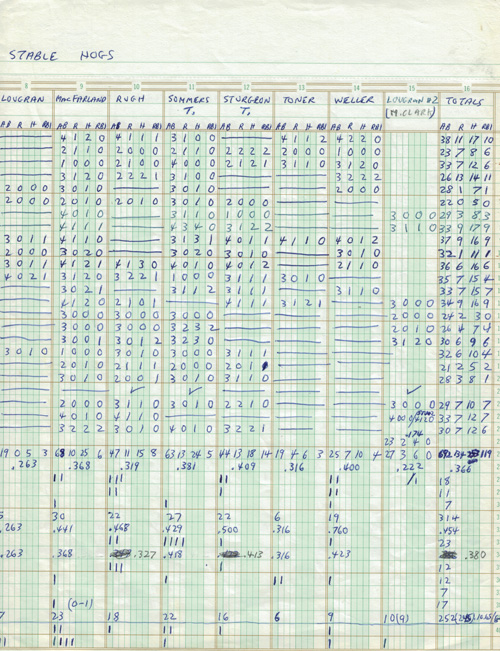 STABLE HOGS
8 9 10 11 12 13 14 15 16
LOUGRAN MACFARLAND RUGH SOMMERS STURGEON TONER WELLER LOUGRAN #2 TOTALS
AB R H RBI AB R H RBI AB R H RBI AB R H RBI AB R H RBI AB R H RBI AB R H RBI AB R H RBI
4 1 2 0 4 1 1 1 3 1 0 0 4 1 1 2 4 2 2 0 38 11 17 10
2 1 1 0 2 0 0 0 2 0 0 0 2 2 2 2 2 0 0 0 1 0 0 0 23 7 8 6
1 0 0 0 2 1 0 0 4 0 0 0 2 1 2 1 3 1 1 0 3 1 2 0 33 7 12 6
3 1 2 0 2 2 2 1 3 0 1 0 3 2 2 2 26 13 14 11
2 0 0 0 3 0 1 0 2 0 0 0 28 1 7 1
2 0 0 0 2 0 1 0 2 0 1 0 3 0 1 0 2 0 0 0 22 0 5 0
4 0 1 0 3 1 1 0 1 0 0 0 3 0 0 0 29 3 8 3
4 1 1 1 4 3 4 0 3 1 2 2 3 1 1 0 33 9 17 9
3 0 1 1 3 1 3 1 4 0 1 1 4 1 1 0 4 0 1 2 37 9 16 9
2 0 0 0 3 0 2 0 3 0 2 0 3 0 1 1 3 0 1 0 32 1 11 1
4 1 2 1 4 1 3 0 4 0 1 0 4 0 1 2 2 1 1 0 36 6 16 6
4 0 2 1 3 1 2 0 3 2 2 1 1 0 0 0 3 1 1 1 3 0 1 0 35 7 15 4
3 0 2 1 3 1 1 2 3 1 1 0 33 7 15 7
4 1 2 0 2 1 0 1 4 1 1 1 3 1 2 1 3 0 0 0 34 9 16 9
3 0 0 0 3 0 0 0 3 0 0 0 2 0 0 0 24 2 3 0
3 0 0 0 3 0 0 0 3 2 3 2 2 0 1 0 26 4 7 4
3 0 0 1 3 0 1 2 3 2 3 0 3 1 2 0 30 6 9 6
3 0 1 0 1 0 0 0 3 0 1 0 3 0 0 0 3 1 1 1 32 6 10 4
2 0 1 0 2 1 1 1 2 0 0 0 2 0 1 21 2 5 2
3 0 1 0 2 0 0 1 3 0 1 0 3 1 1 1 28 3 8 1
2 0 0 0 3 1 1 0 3 0 1 0 2 2 1 0 3 0 0 0 29 7 10 7
4 0 1 0 4 1 1 0 33 7 12 7
3 2 2 2 3 1 1 0 4 0 1 0 3 2 2 1 30 7 12 6
23 2 4 0
19 0 5 3 68 10 25 6 47 11 15 8 63 13 24 5 44 13 18 14 19 4 6 3 25 7 10 4 27 3 6 0
.263 .368 .319 .381 .409 .316 .400 .222 .366
18
11
7
5 30 22 27 22 6 19 314
.263 .441 .468 .429 .500 .316 .760 .454
23
.263 .368 .327 .418 .413 .316 .423 .380
12
12
7
(0-1) 17
7 23 18 22 16 6 9 10(9)